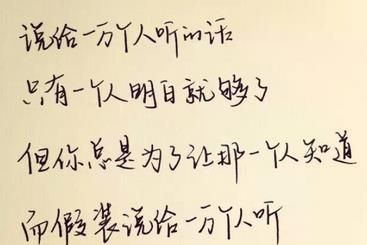 说给一万个人听的话
只有一个人明白就够了
但你总是为了让那一个人知道
而假装说给一万个人听